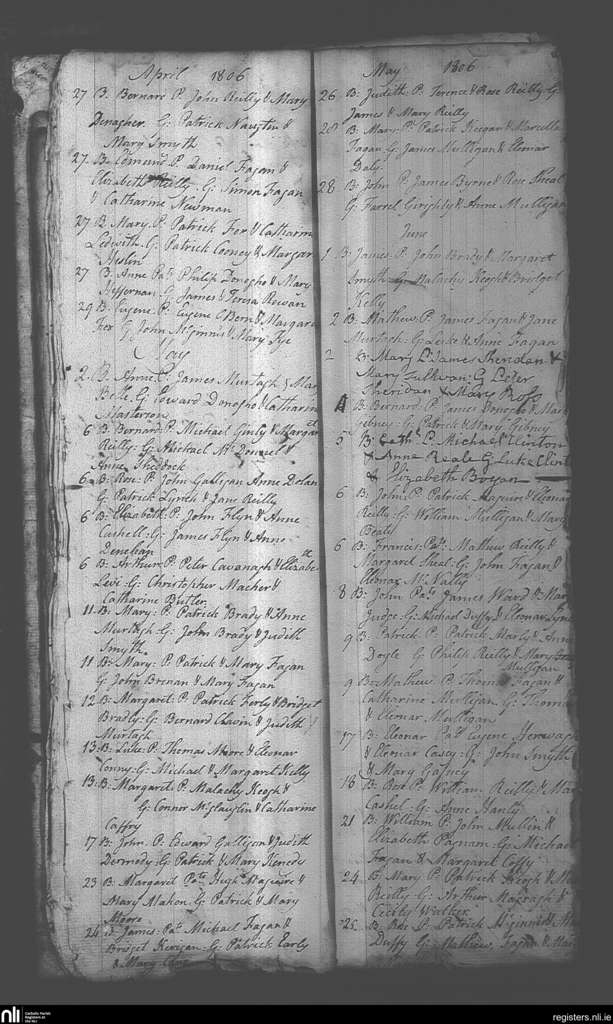 April 1806
27 B. Bernard P. John Reilly & Mary
Denagher. G: Patrick Naughten &
Mary Smyth
27. B. Edmund P. Daniel Fagan &
Elizabeth Reilly. G: Simon Fagan
& Catharine Newman
27 B. Mary. P. Patrick Fox & Catharin
Ledwith G. Patrick Cooney & Margar
27 B. Anne Pts. Philip Donogho & Mary
Heffernan G: James & Teresa
29 B. Eugene P. Eugene & Margaret
Fox G. John McGinnis & Mary Fye
May
2. B. Anne P. James Murtagh & Mary
G Edward Donogho & Catharin
Masterson
6 B. Bernard P. Michael Ginly & Margaret
Reilly: G: Michael &
Anne
6 B. Rose P. John Galligan Anne Dolan
G Patrick Lynch & Jane Reilly
6 B. Elizabeth P. John Flyn & Anne
Cashell: G: James Flyn & Anne
Denehan
6 B. Arthur P. Peter Cavanagh & Elizabeth
Levi: G: Christopher &
Catharine Butler
11 B. Mary: P. Patrick Brady & Anne
Murtagh G: John Brady & Judith
Smyth
11 B: Mary: P. Patrick & Mary Fagan
G John Brenan & Mary Fagan
12 B. Margaret: P. Patrick & Bridget
Brady: G: Bernard & Judith
Murtagh
13 B: Luke: P. Thomas Moore & Eleonar
Conry: G: Michael & Margaret Kelly
13 B: Margaret P. Malachy Keogh &
G: Connor & Catharine
Caffry
17 B: John. P: Edward Galligan & Judith
Dermody G: Patrick & Mary Kenedy
23 B. Margaret Pts. Hugh Maguire &
Mary Mahon G: Patrick & Mary
Moore
24 B: James: Pts. Michael Fagan &
Bridget Kerigan: G: Patrick Early
& Mary
May 1806
26 B: Judith: P. Terence & Rose Reilly G
James & Mary Reilly
28 B: Mary: P. Patrick Keegan & Marcella
Fagan G James Mulligan & Eleonar
Daly
28 B: John P. James Byrne & Rose Sheal
G Farrel & Anne Mulligan
June
1 B: James. P. John Brady & Margaret
Smyth G Malachy Keogh & Bridget
Kelly
2 B: Mathew P. James Fagan & Jane
Murtagh: G Luke & Anne Fagan
2 B: Mary P. James Sheridan &
Mary Sullivan: G
Sheridan & Mary
B: Bernard: P. James Donogho & Mary
Gibney: G: Patrick & Mary Gibney
5 B: Cath: P. Michael Clinton
& Anne Reale G. Luke Clint
& Elizabeth Bogan
6 B: John: P: Patrick Maguire & Eleonar
Reilly: G: William Mulligan & Mary
Beaty
6 B. Francis: Pts. Mathew Reilly &
Margaret Sheal: G: John Fagan &
Eleonar McNally
8 B: John Pts. James Ward & Mar
Judge: G: Michael Duffy & Eleonar
9 B: Patrick. P: Patrick & Anne
Doyle G Philip Reilly & Mary
Mulligan
9 B: Mathew. P Thomas Fagan &
Catharine Mulligan G: Thomas
& Eleonar Mulligan
17 B: Eleonar Pts. Eugene
& Eleonar Casey: G: John Smyth
& Mary Gafney
18 B: Rose P. William Reilly & Mar
Cashel: G: Anne Hanly
21 B: William P. John Mullin &
Elizabeth G: Michael
Fagan & Margaret Coffy
24 B: Mary P: Patrick Keogh &
Reilly. G: Arthur &
Cicily
25 B: Rose P. Patrick &
Duffy G: Mathew Fagan & Mar
nli
Catholic Parish
Registers at
the NLI
registers.nli.ie